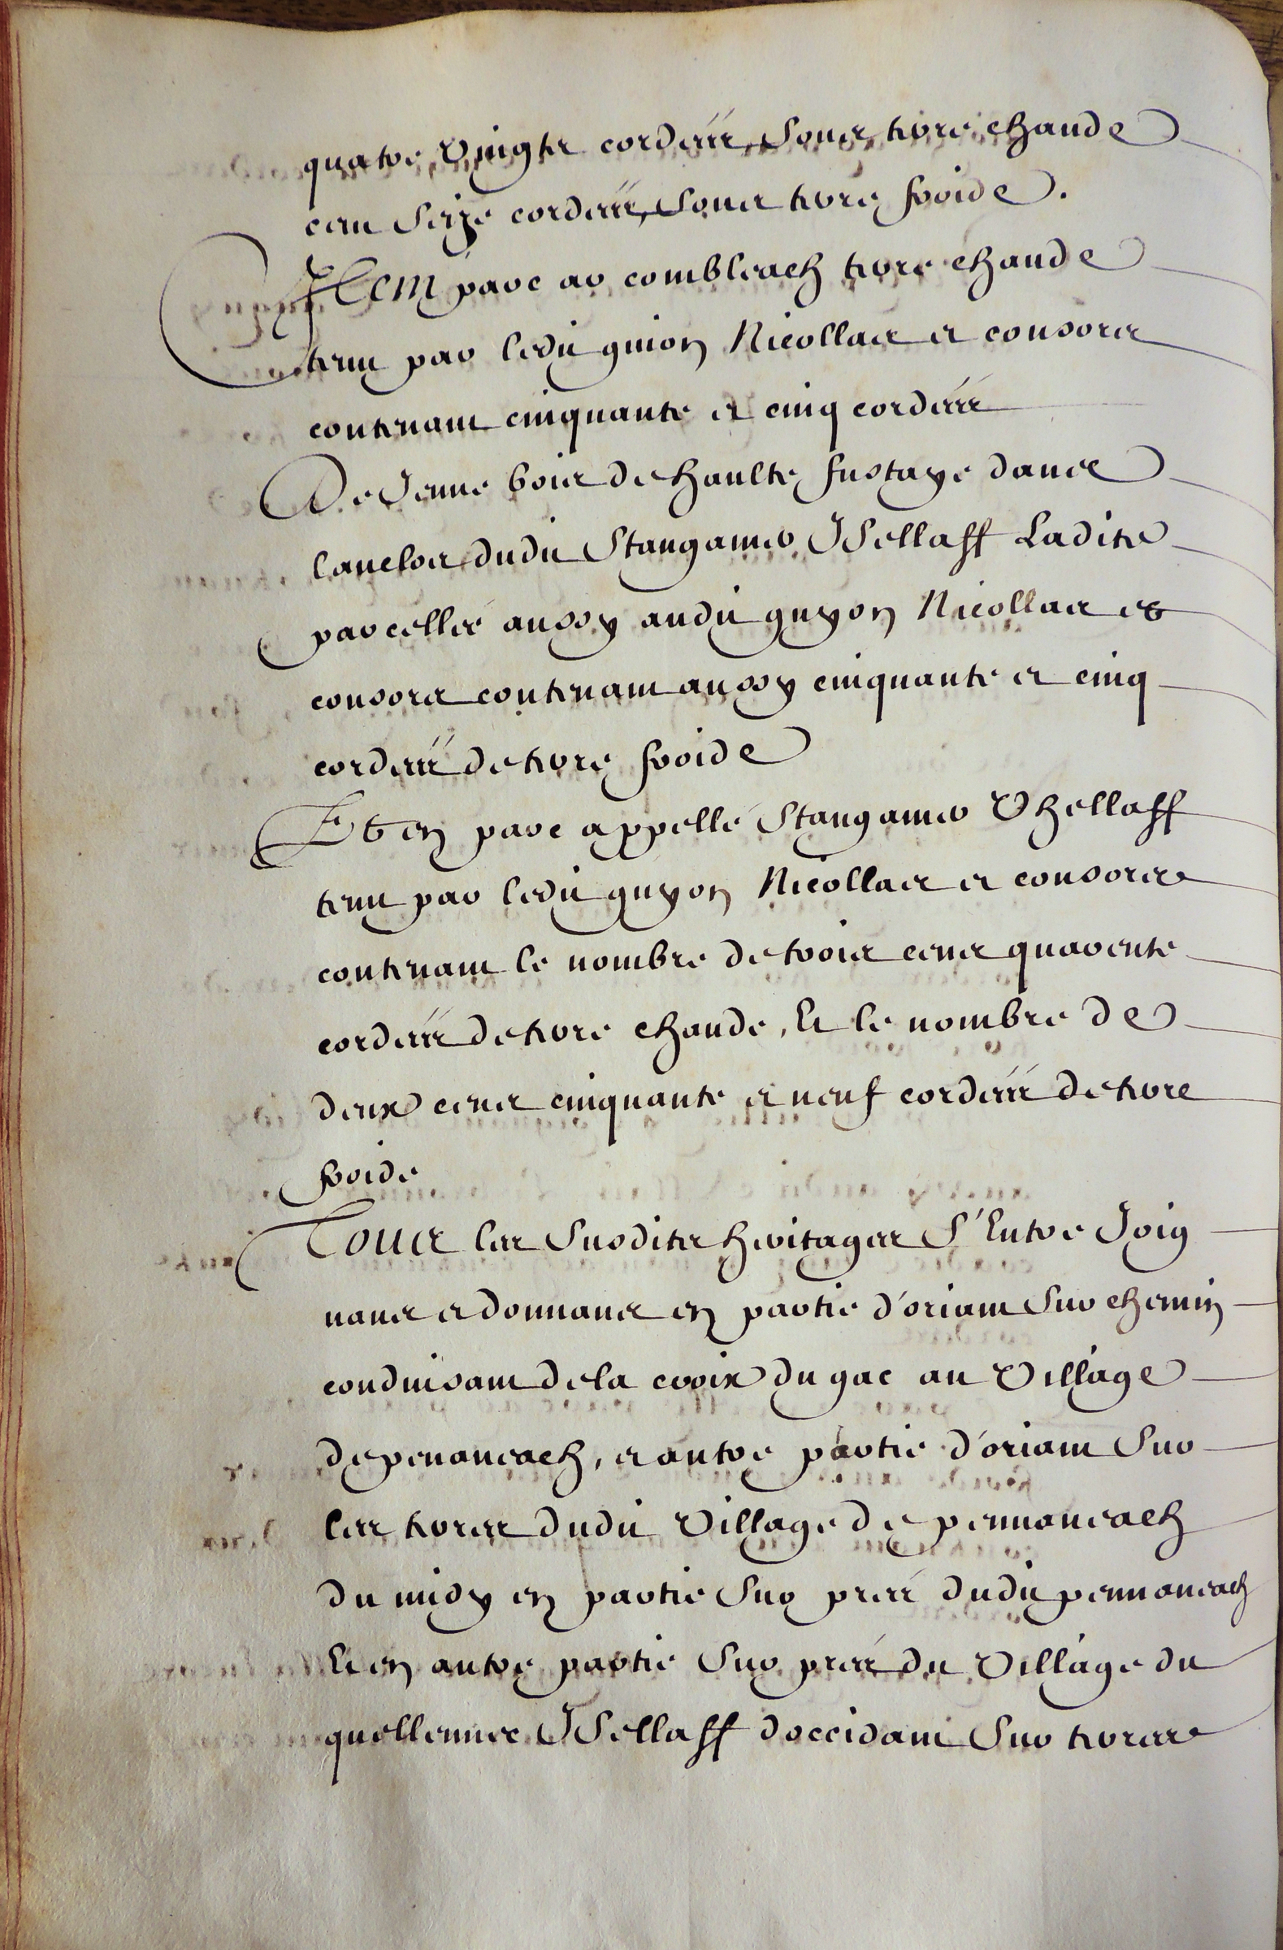 quatre Vingts cordées, Soubs terre chaude
cent Seize cordées, Soubs terre froide.
Item parc ar combleach terre chaude
tenu par ledit guion Nicollas et consors
contenant cinquante et cinq cordées
De Jeune bois de haulte fustaye dans
l'anclos dudit Stangamer Isellaff Ladite
parcelle aussy audit guyon Nicollas et
consors contenant aussy cinquante et cinq
cordées de terre froide
Et en parc appellé Stangamer Vhellaff
tenu par ledit guyon Nicollas et consors
contenant le nombre de trois cens quarente
cordées de terre chaude, Et le nombre de
deux cens cinquante et neuf cordées de terre
froide
Tous les Susdits heritages S'Entre Joig
nans et donnans en partie d'oriant Sur chemin
conduisant de la croix du gac au Village
de penancach, et autre partie d'oriant Sur
les terres dudit Village de pennancach
du midy en partie Sur prés dudit pennancach
Et en autre partie Sur prés du Village du
quellennec Isellaff d'occidant Sur terres